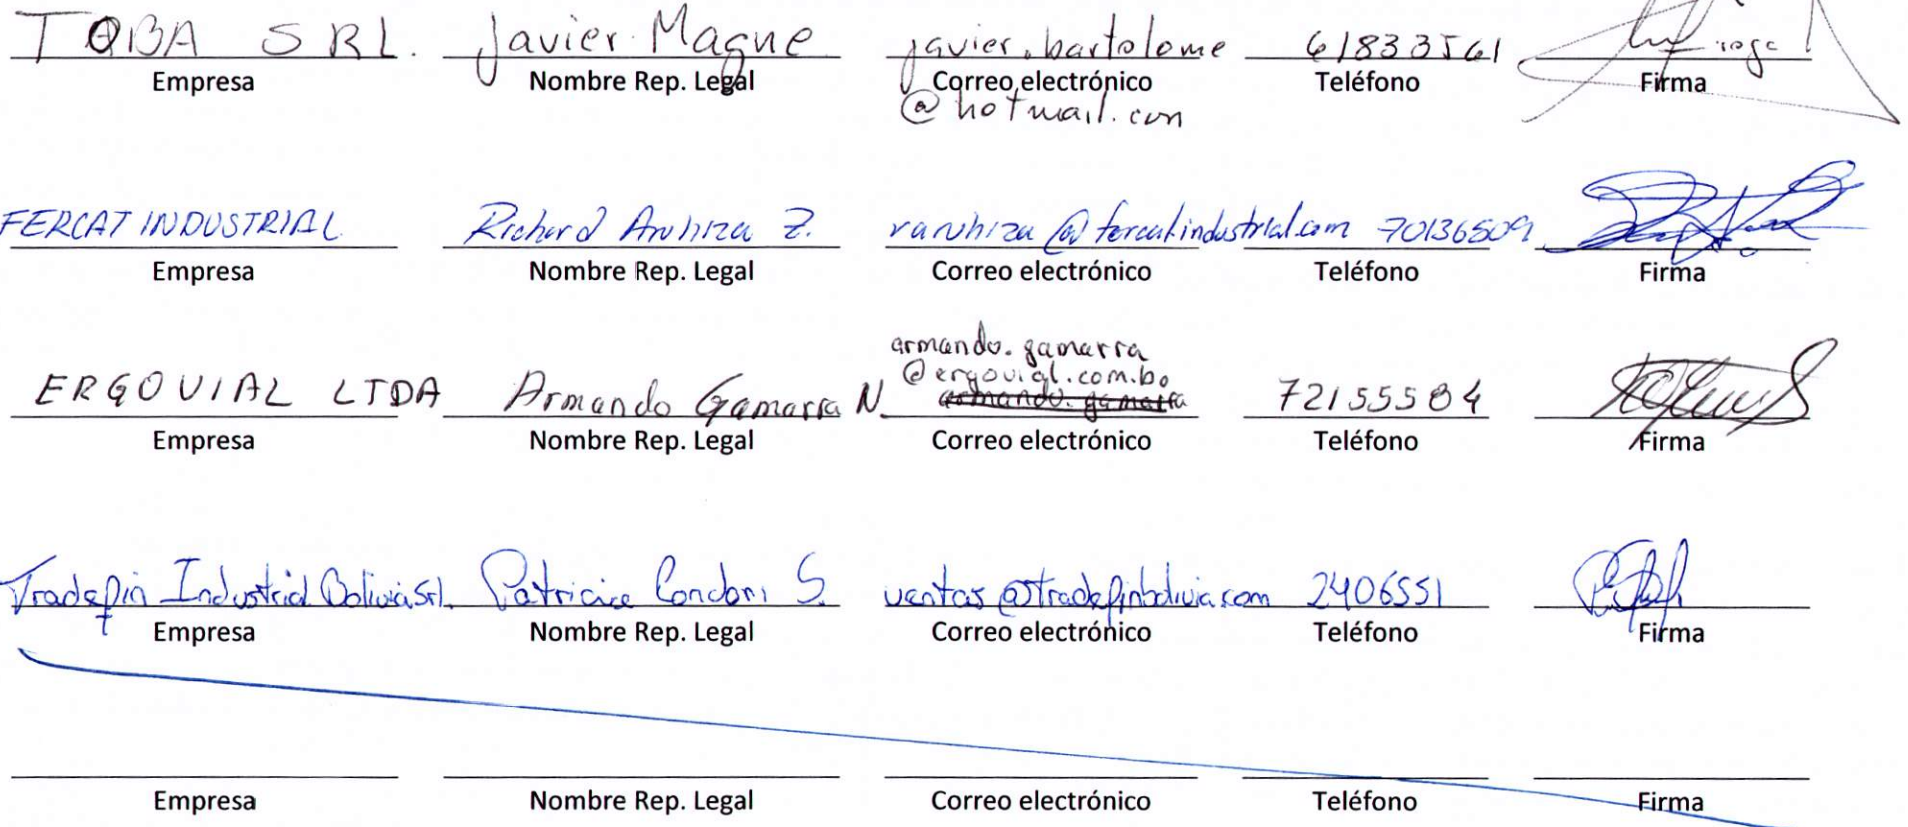 TQBA SRL. Javier Magne javier.bartolome 61833561
Empresa Nombre Rep. Legal Correo electrónico Teléfono Firma
@hotmail.com
FERCAT INDUSTRIAL Richard Aruhiza Z. raruhiza@fercatindustrial.com 70136509
Empresa Nombre Rep. Legal Correo electrónico Teléfono Firma
armando.gamarra
@ergovial.com.bo
ERGOVIAL LTDA Armando Gamarra N. armando.gamarra 72155584
Empresa Nombre Rep. Legal Correo electrónico Teléfono Firma
Tradefin Industrial Bolivia Srl. Patricia Condori S. ventas@tradefinbolivia.com 2406551
Empresa Nombre Rep. Legal Correo electrónico Teléfono Firma
Empresa Nombre Rep. Legal Correo electrónico Teléfono Firma